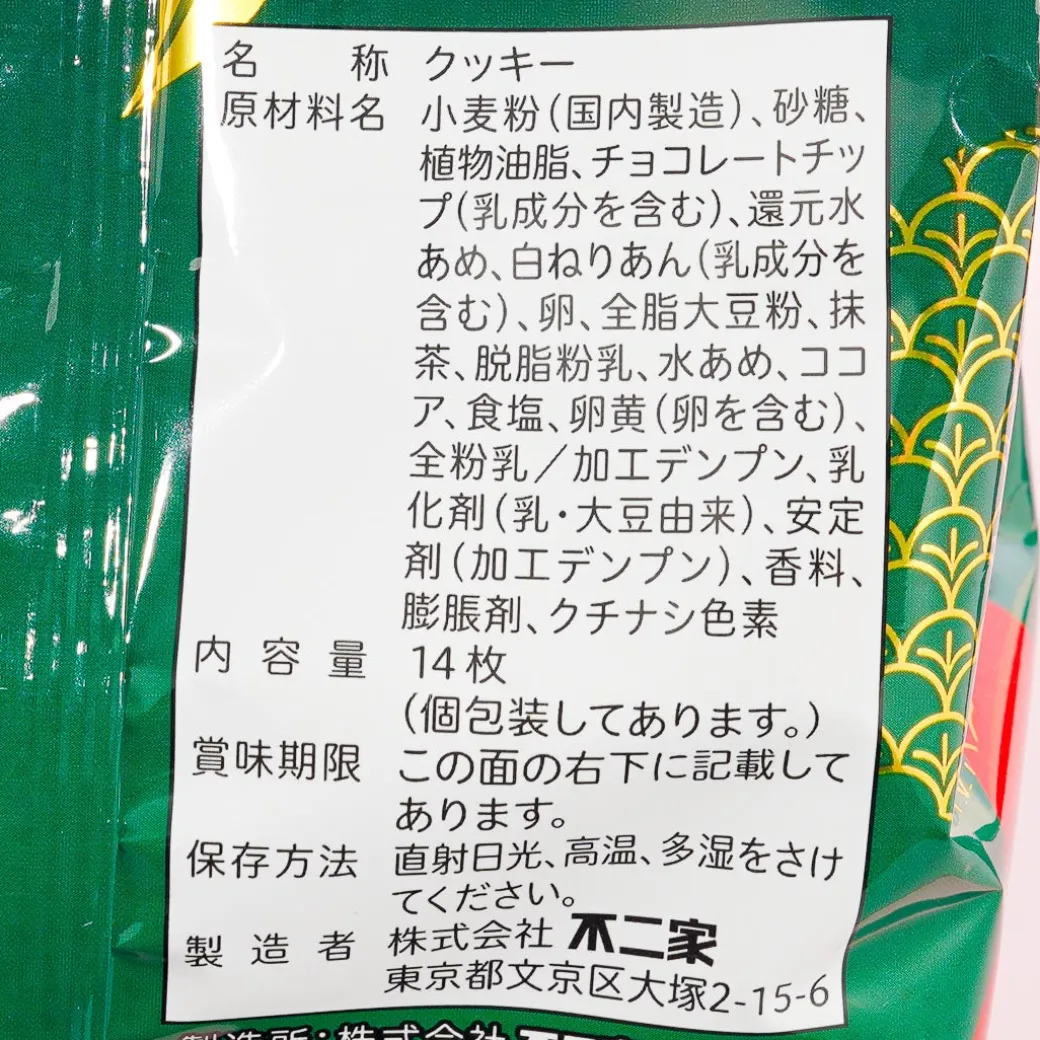 名称 クッキー
原材料名 小麦粉(国内製造)、砂糖、
植物油脂、チョコレートチッ
プ(乳成分を含む)、還元水
あめ、白ねりあん(乳成分を
含む)、卵、全脂大豆粉、抹
茶、脱脂粉乳、水あめ、ココ
ア、食塩、卵黄(卵を含む)、
全粉乳/加工デンプン、乳
化剤(乳・大豆由来)、安定
剤(加工デンプン)、香料、
膨脹剤、クチナシ色素
内容量 14枚
(個包装してあります。)
賞味期限 この面の右下に記載して
あります。
保存方法 直射日光、高温、多湿をさけ
てください。
製造者 株式会社 不二家
東京都文京区大塚2-15-6
製造所:株式会社 不二